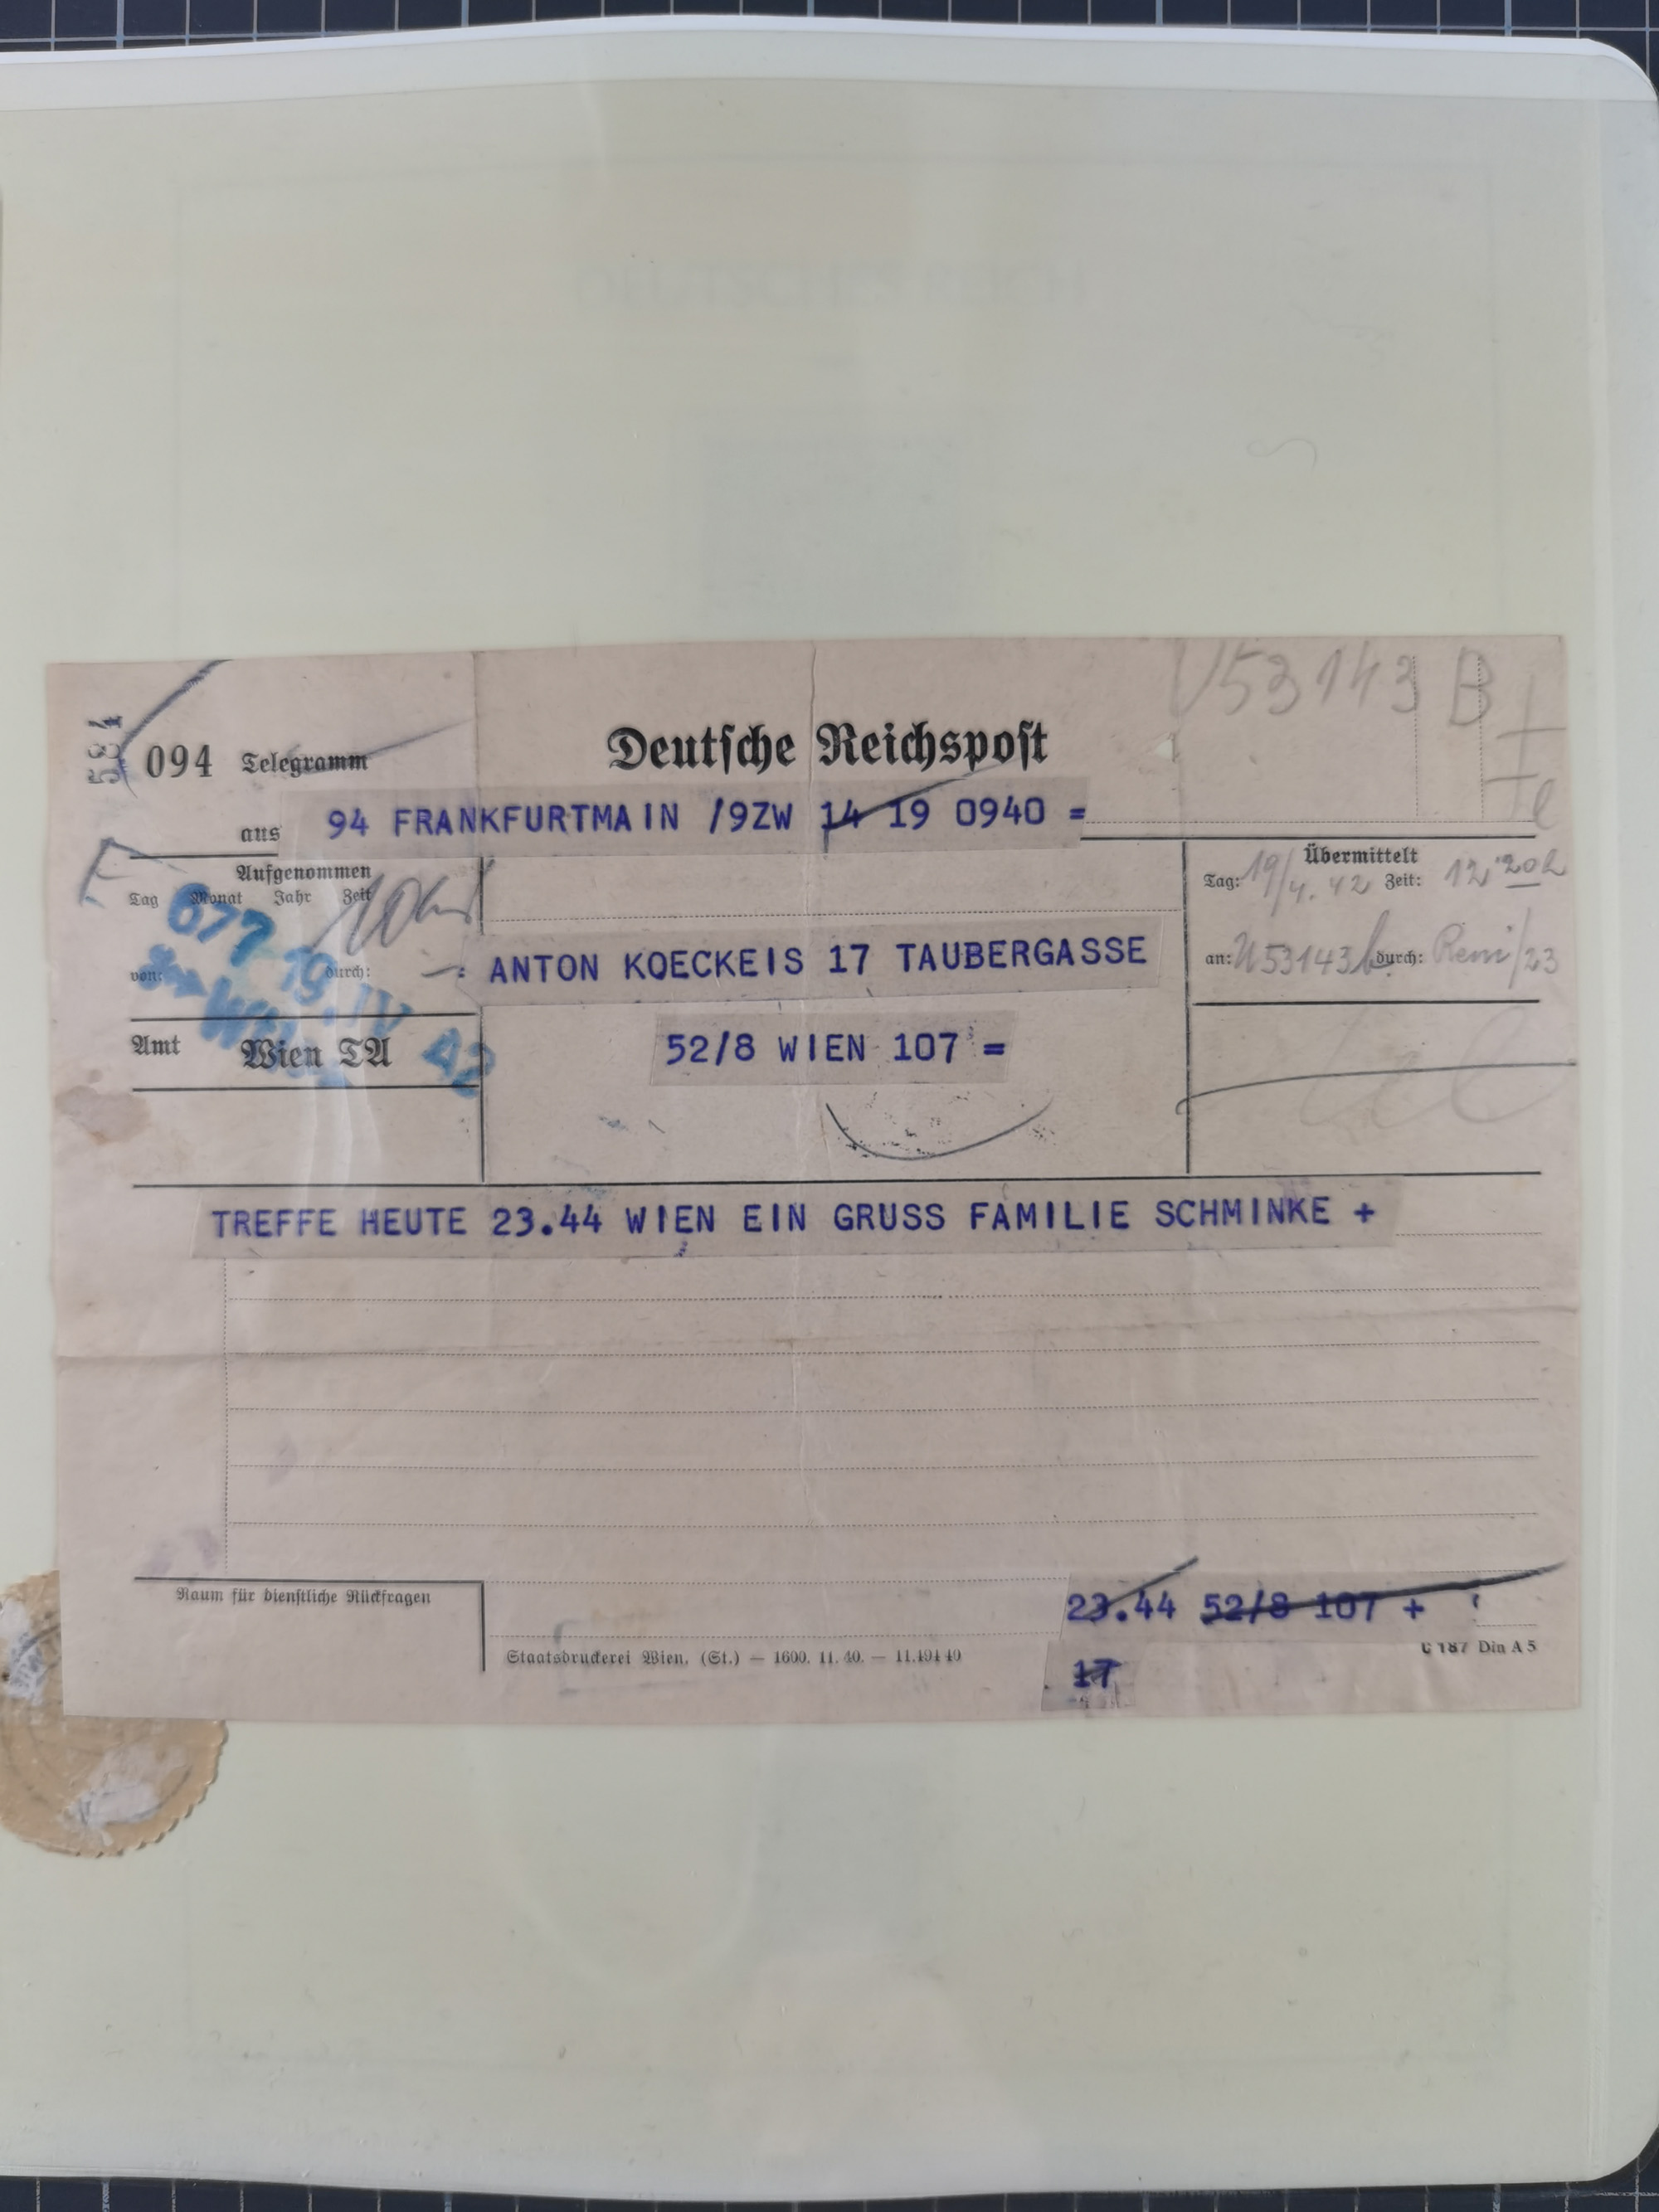 U53143 B
584
094 Telegramm
Deutsche Reichspost
aus 94 FRANKFURTMAIN /9ZW 14 19 0940 =
Aufgenommen
Tag Monat Jahr Zeit
677
19.IV 42
von: durch:
Amt Wien TA
: ANTON KOECKEIS 17 TAUBERGASSE
52/8 WIEN 107 =
Übermittelt
Tag: 19/4.42 Zeit: 12 20h
an: U53143b durch: /23
TREFFE HEUTE 23.44 WIEN EIN GRUSS FAMILIE SCHMINKE +
Raum für dienstliche Rückfragen
23.44 52/8 107 +
17
Staatsdruckerei Wien. (St.) — 1600. 11. 40. — 11.191 40
C 187 Din A 5